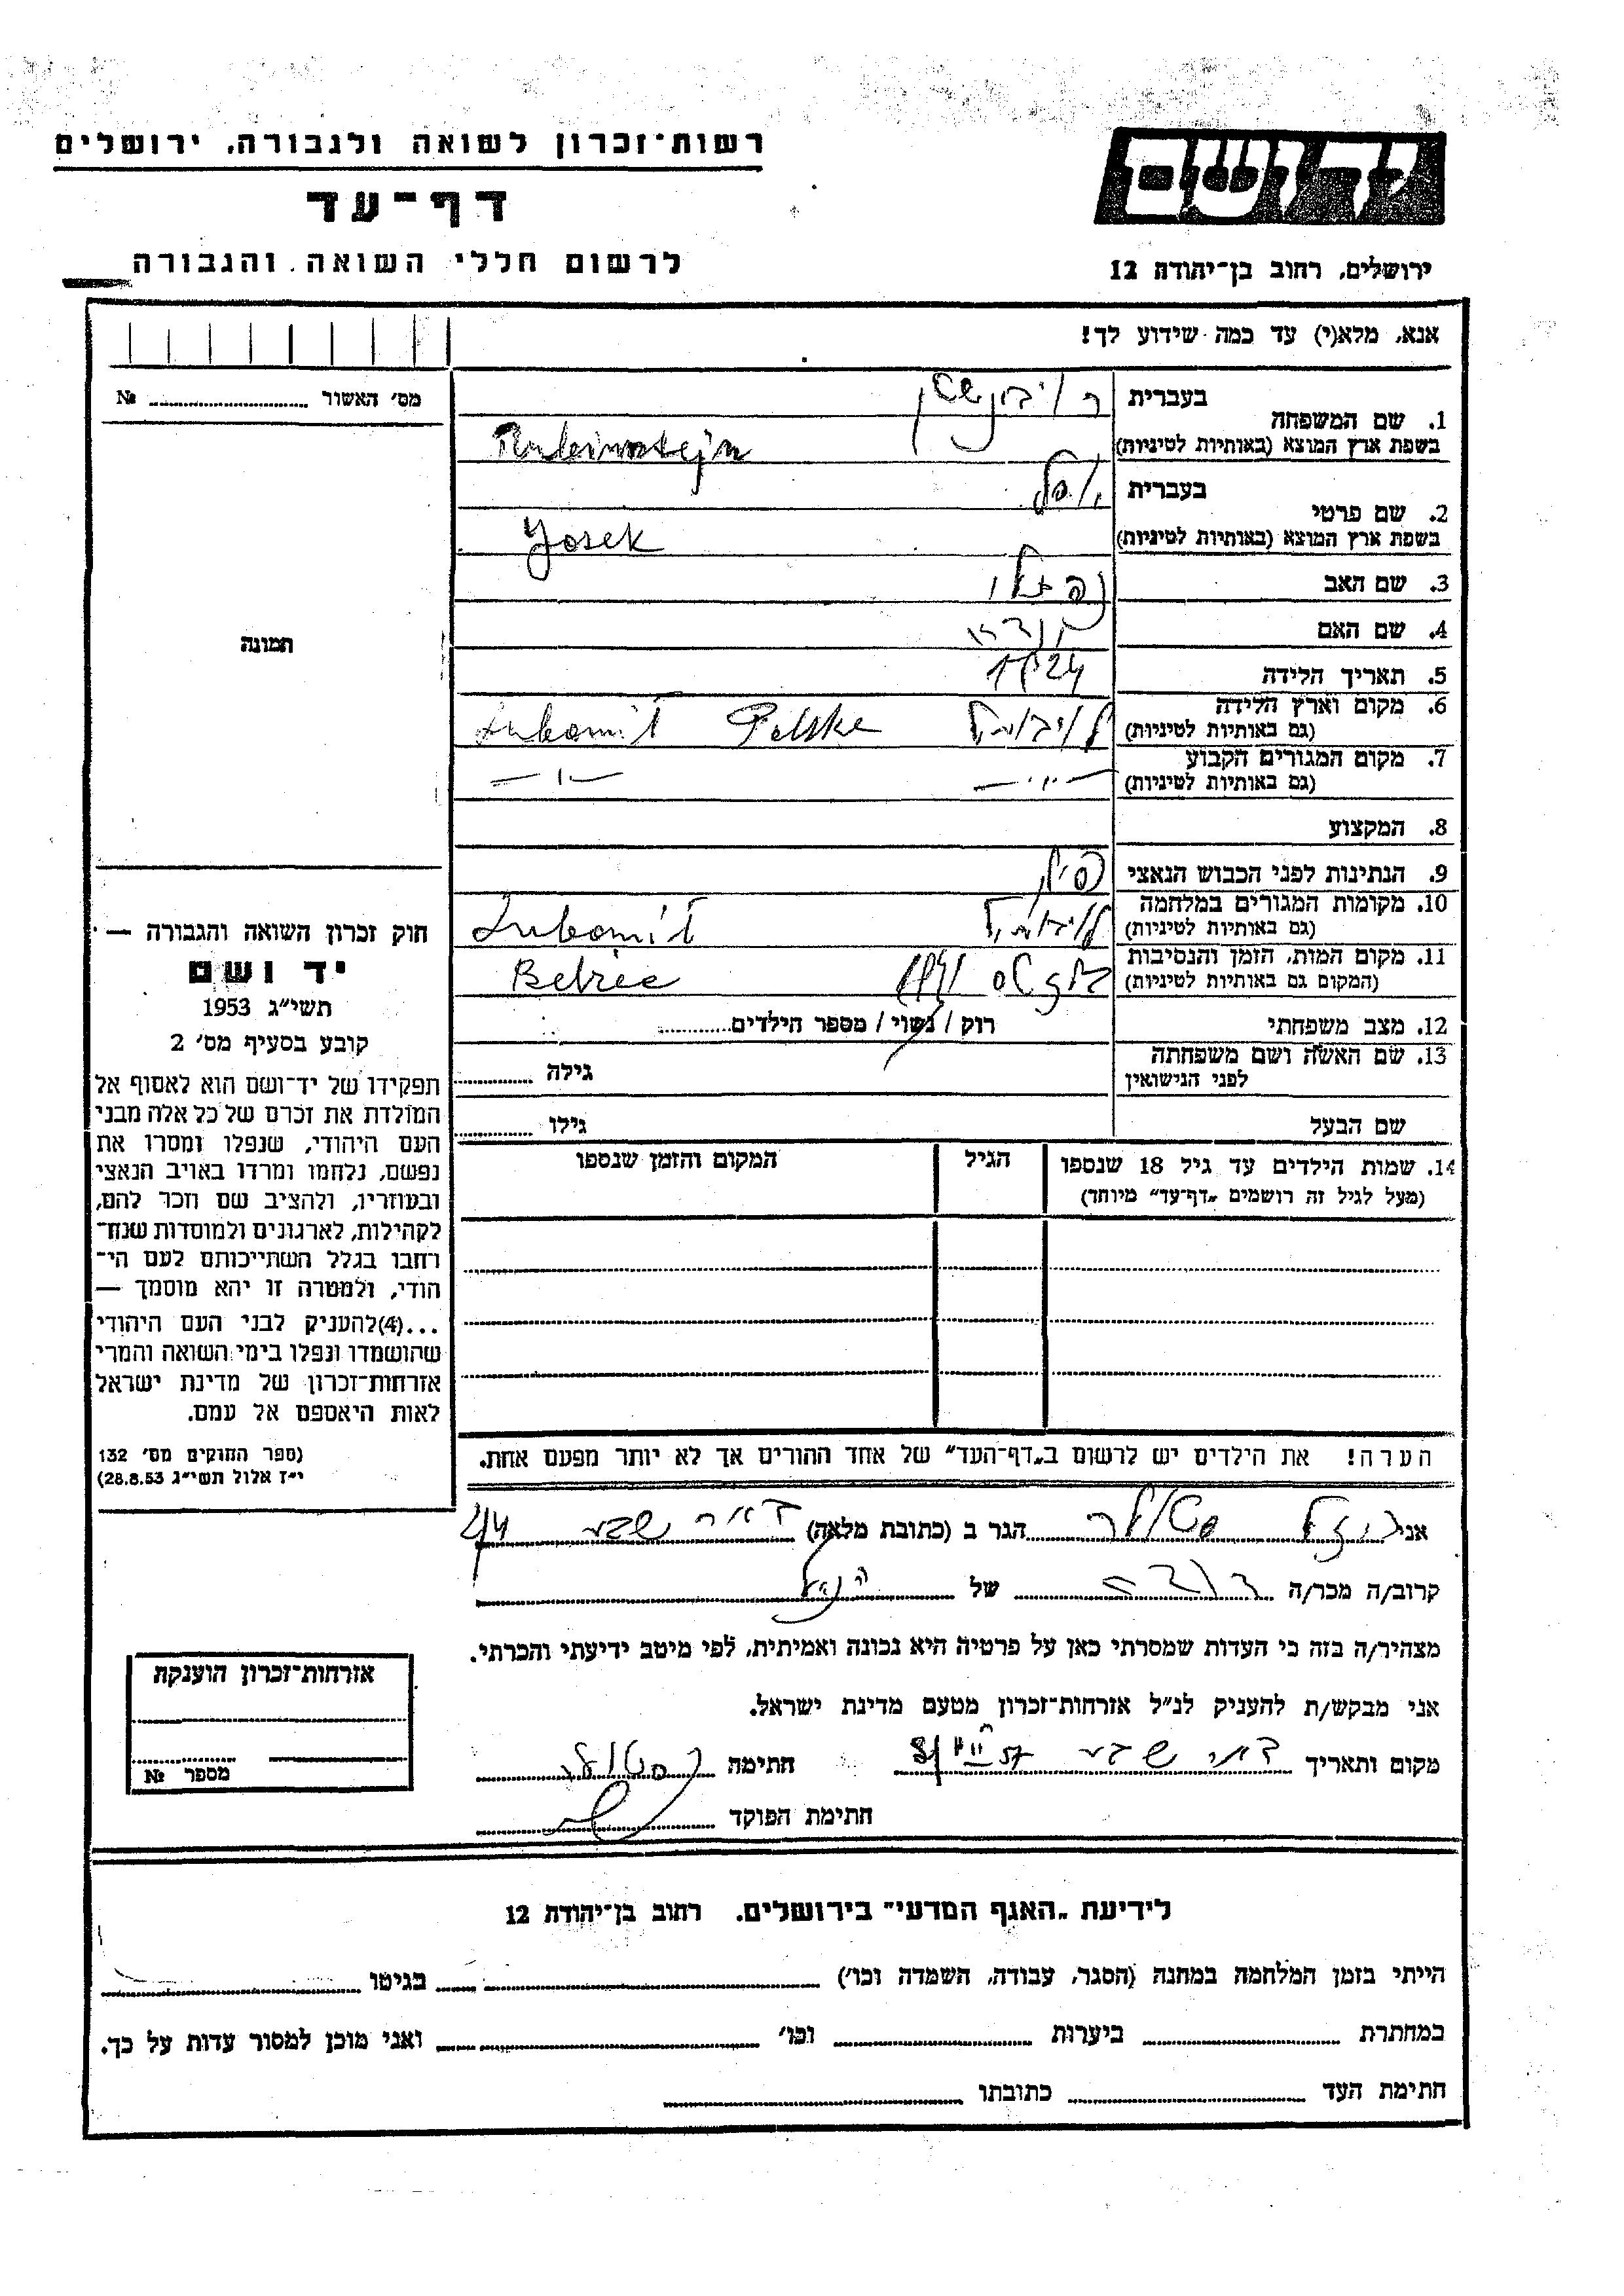 רשות־זכרון לשואה ולגבורה, ירושלים
דף־עד
לרשום חללי השואה והגבורה
ידושם
ירושלים, רחוב בן־יהודה 12
אנא, מלא(י) עד כמה שידוע לך!
מס' האשור №
תמונה
1. שם המשפחה
בעברית רובינשטיין
בשפת ארץ המוצא (באותיות לטיניות) Rubinstejn
2. שם פרטי
בעברית
בשפת ארץ המוצא (באותיות לטיניות) Yosek
3. שם האב נפתלי
4. שם האם
5. תאריך הלידה 1924
6. מקום וארץ הלידה
(גם באותיות לטיניות) ליבומל Polska Lubomil
7. מקום המגורים הקבוע
(גם באותיות לטיניות) — " — — " —
8. המקצוע
9. הנתינות לפני הכבוש הנאצי פולין
10. מקומות המגורים במלחמה
(גם באותיות לטיניות) ליבומל Lubomil
11. מקום המות, הזמן והנסיבות
(המקום גם באותיות לטיניות) Belzec
12. מצב משפחתי רוק / נשוי / מספר הילדים
13. שם האשה ושם משפחתה
לפני הנישואין גילה
שם הבעל גילו
14. שמות הילדים עד גיל 18 שנספו
(מעל לגיל זה רושמים „דף־עד” מיוחד)
הגיל
המקום והזמן שנספו
הערה! את הילדים יש לרשום ב„דף־העד” של אחד ההורים אך לא יותר מפעם אחת.
חוק זכרון השואה והגבורה —
יד ושם
תשי״ג 1953
קובע בסעיף מס' 2
תפקידו של יד־ושם הוא לאסוף אל
המולדת את זכרם של כל אלה מבני
העם היהודי, שנפלו ומסרו את
נפשם, נלחמו ומרדו באויב הנאצי
ובעוזריו, ולהציב שם וזכר להם,
לקהילות, לארגונים ולמוסדות שנח־
רחבו בגלל השתייכותם לעם הי־
הודי, ולמטרה זו יהא מוסמך —
...(4)להעניק לבני העם היהודי
שהושמדו ונפלו בימי השואה והמרי
אזרחות־זכרון של מדינת ישראל
לאות היאספם אל עמם.
(ספר החוקים מס' 132
י״ז אלול תשי״ג 28.8.53)
אני הגר ב (כתובת מלאה) באר שבע
קרוב/ה מכר/ה של
מצהיר/ה בזה כי העדות שמסרתי כאן על פרטיה היא נכונה ואמיתית, לפי מיטב ידיעתי והכרתי.
אני מבקש/ת להעניק לנ״ל אזרחות־זכרון מטעם מדינת ישראל.
מקום ותאריך באר שבע חתימה
חתימת הפוקד
אזרחות־זכרון הוענקה
מספר №
לידיעת „האגף המדעי” בירושלים, רחוב בן־יהודה 12
הייתי בזמן המלחמה במחנה (הסגר, עבודה, השמדה וכו') בגיטו
במחתרת ביערות וכו' ואני מוכן למסור עדות על כך.
חתימת העד כתובתו